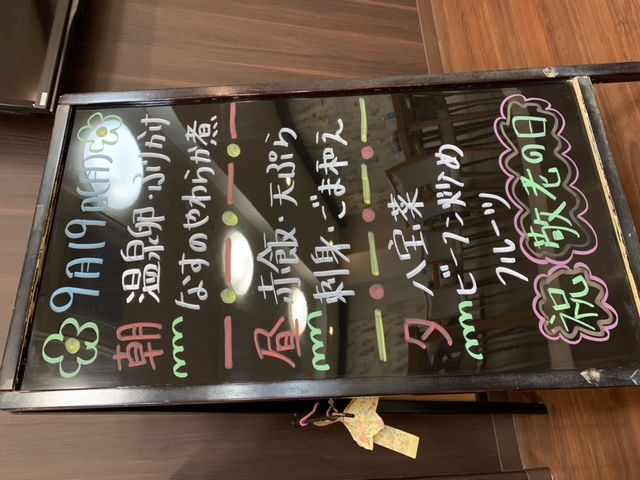 9月19日(月)
朝
温泉卵・ふりかけ
なすのやわらか煮
昼
赤飯・天ぷら
刺身・ごま和え
夕
八宝菜
ビーフン炒め
フルーツ
祝 敬老の日